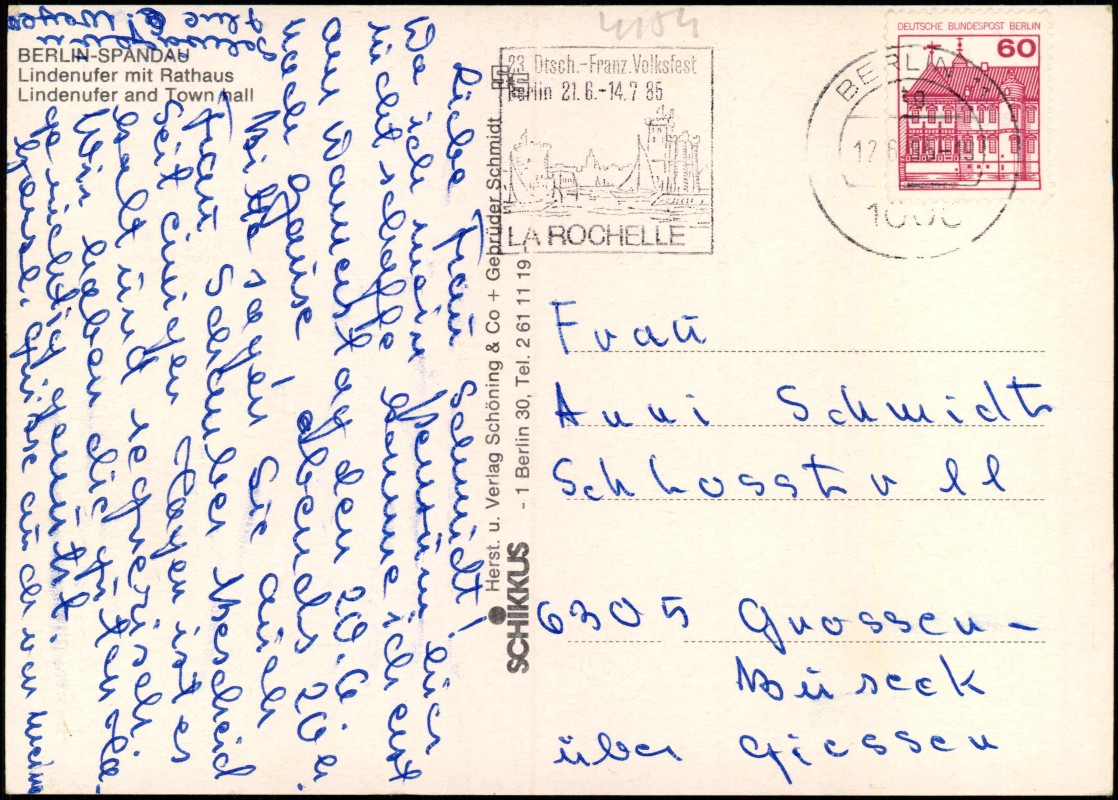 4184
BERLIN-SPANDAU
Lindenufer mit Rathaus
Lindenufer and Town hall
DEUTSCHE BUNDESPOST BERLIN
60
23. Dtsch.-Franz. Volksfest
Berlin 21.6.-14.7.85
LA ROCHELLE
BERLIN 11
1000
Liebe Frau Schmidt!
Da ich mein
nicht schaffe komme ich erst
am Donnerstag den 20.6.
nach Hause abends 20
Bitte sagen Sie auch
Frau Schember Bescheid
Seit einigen Tagen ist es
kalt und regnerisch.
Wir haben die guten
genützt.
Herzl. Grüsse auch von
SCHIKKUS
Herst. u. Verlag Schöning & Co + Gebrüder Schmidt
- 1 Berlin 30, Tel. 2 61 11 19 -
Frau
Anni Schmidt
Schlosstr 11
6305 Grossen-
Buseck
über Giessen